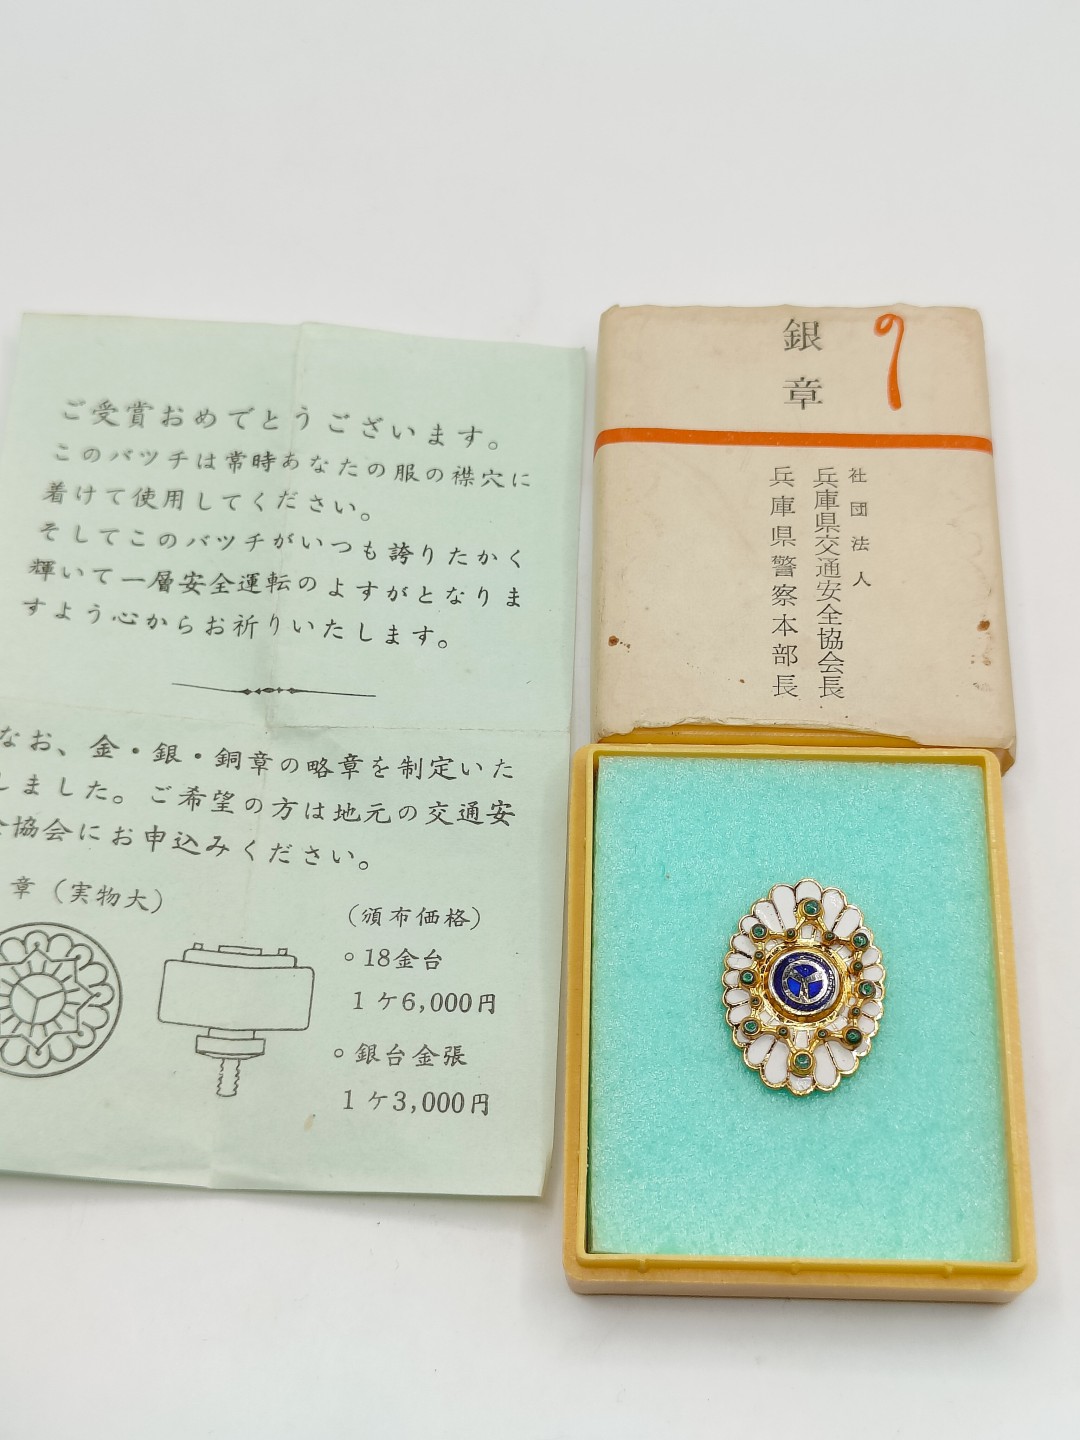 ご受賞おめでとうございます。
このバツチは常時あなたの服の襟穴に
着けて使用してください。
そしてこのバツチがいつも誇りたかく
輝いて一層安全運転のよすがとなりま
すよう心からお祈りいたします。
なお、金・銀・銅章の略章を制定いた
しました。ご希望の方は地元の交通安
全協会にお申込みください。
章（実物大）
（頒布価格）
○18金台
1ケ6,000円
○銀台金張
1ケ3,000円
銀章
社団法人
兵庫県交通安全協会長
兵庫県警察本部長